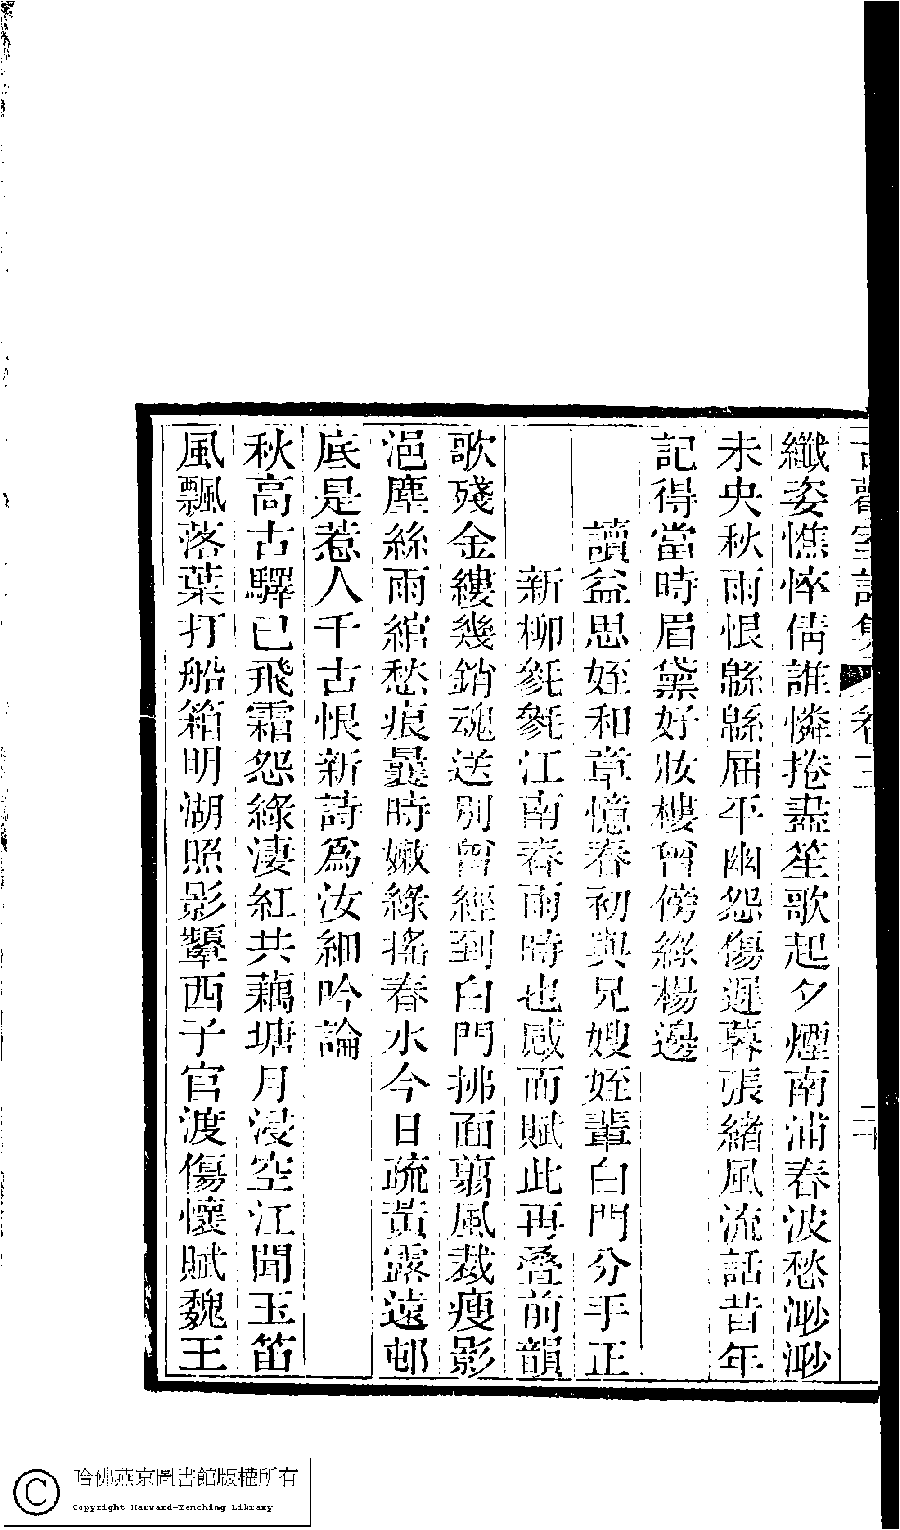 纖姿憔悴倩誰憐捲盡笙歌起夕煙南浦春波愁渺渺
未央秋雨恨緜緜屈平幽怨傷遲暮張緒風流話昔年
記得當時眉黛好妝樓曾傍綠楊邊
讀益思姪和章憶春初與兄嫂姪輩白門分手正
新柳毿毿江南春雨時也感而賦此再疊前韻
歌殘金縷幾銷魂送別曾經到白門拂面翦風裁瘦影
浥塵絲雨綰愁痕曩時嫩綠搖春水今日疏黃露遠邨
底是惹人千古恨新詩爲汝細吟論
秋高古驛已飛霜怨綠淒紅共藕塘月浸空江聞玉笛
風飄落葉打船箱明湖照影顰西子官渡傷懷賦魏王
哈佛燕京圖書館版權所有
Copyright Harvard-Yenching Library